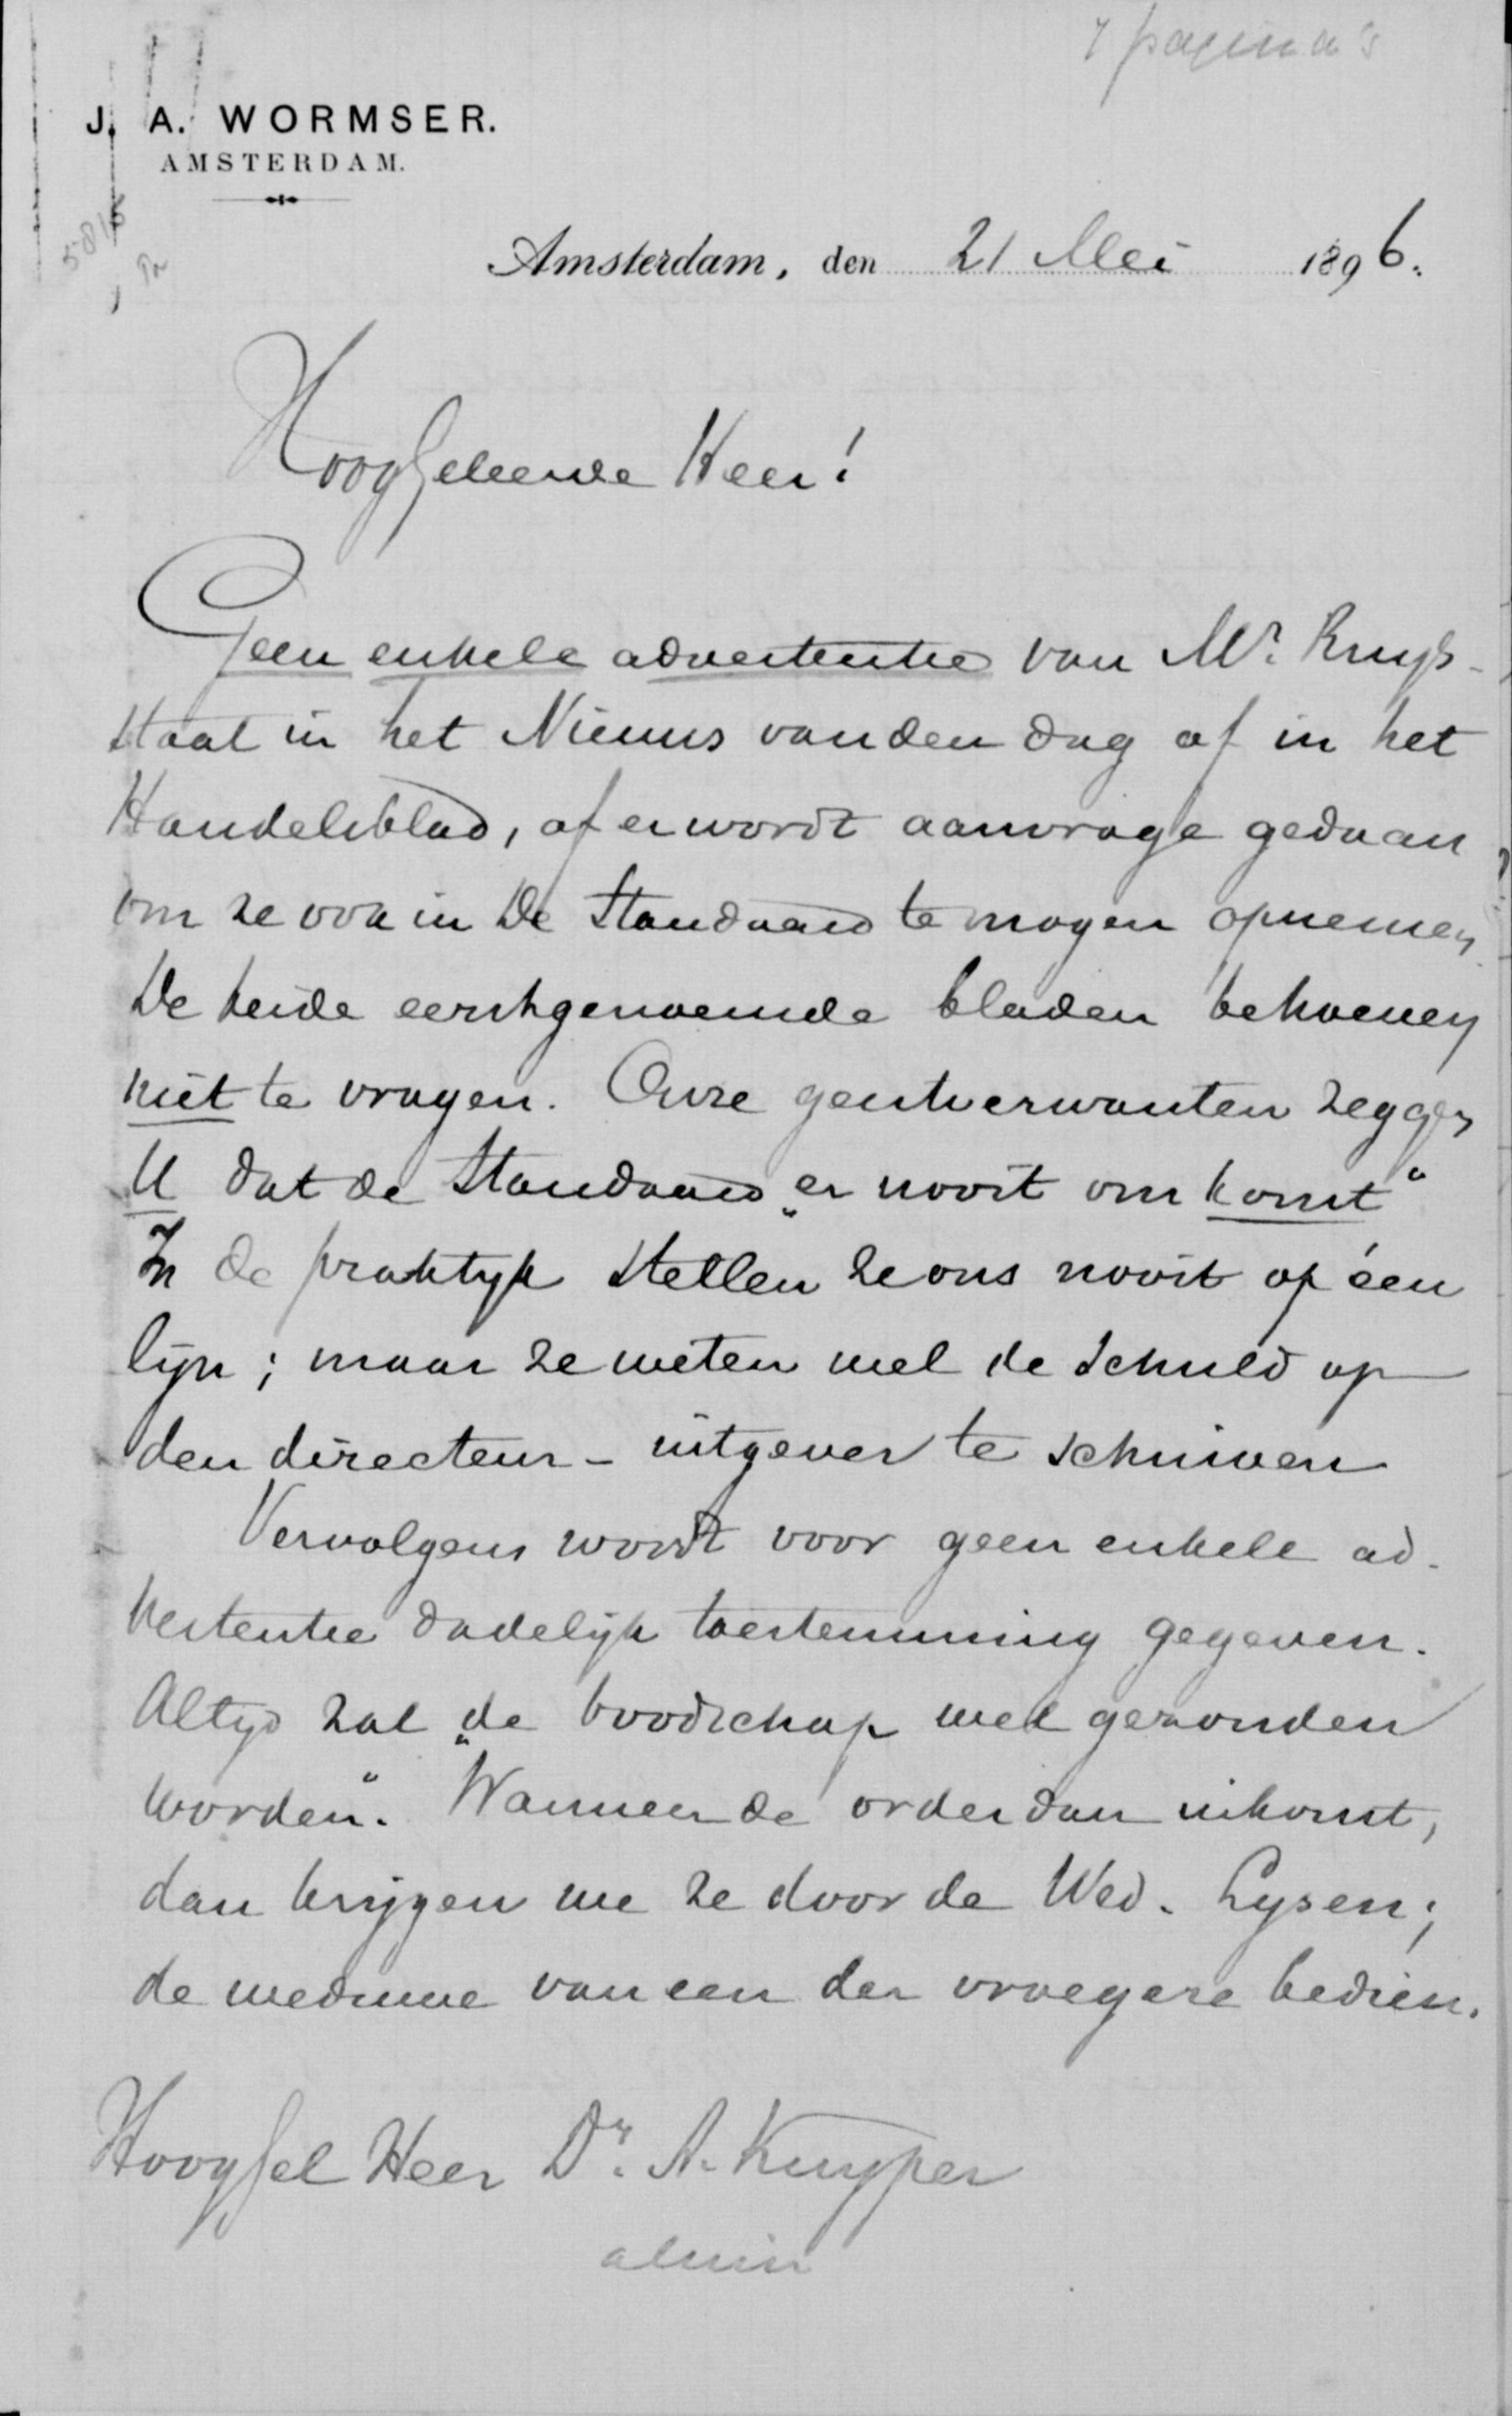 4 pagina's
J. A. WORMSER.
AMSTERDAM.
Amsterdam, den 21 Mei 1896.
HoogGeleerde Heer!
Geen enkele advertentie van Mr. Kruys-
staat in het Nieuws van den dag of in het
Handelsblad, of er wordt aanvrage gedaan
om ze ook in De Standaard te mogen opnemen.
De beide eerstgenoemde bladen behoeven
niet te vragen. Onze geestverwanten zeggen
U dat de Standaard „er nooit om komt"
In de praktijk stellen ze ons nooit op één
lijn; maar ze weten wel de schuld op
den directeur-uitgever te schuiven
Vervolgens wordt voor geen enkele ad-
vertentie dadelijk toestemming gegeven.
Altijd zal „de boodschap wel gezonden
worden". Wanneer de order dan inkomt,
dan krijgen we ze door de Wed. Lysen;
de weduwe van een der vroegere bedien-
HoogGel Heer Dr. A. Kuyper
alhier